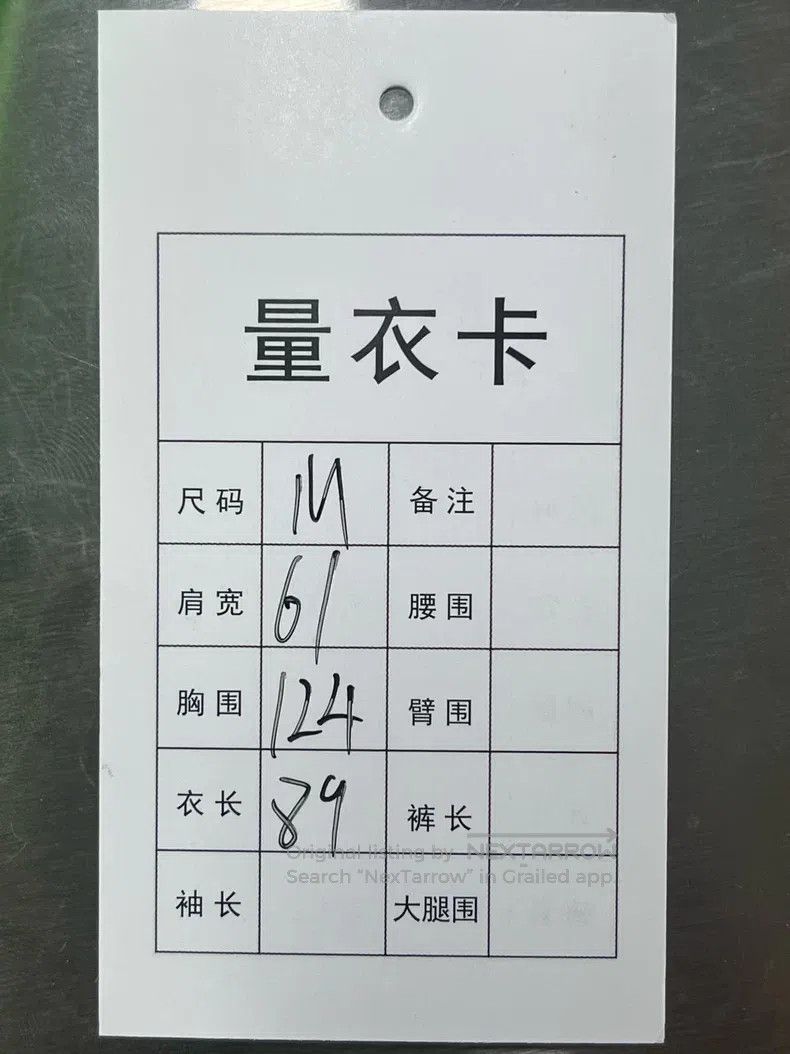 量衣卡
尺码 M 备注
肩宽 61 腰围
胸围 124 臂围
衣长 89 裤长
Original listing by NEXTARROW
Search "NexTarrow" in Grailed app.
袖长 大腿围